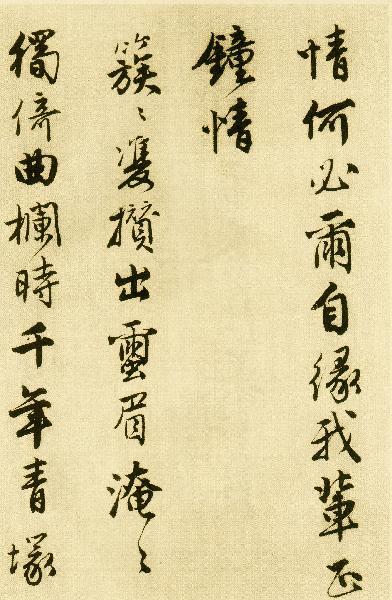 情何必爾自緣我輩正
鐘情
簇〻雙攢出蠒眉淹〻
獨倚曲欄時千年青塚